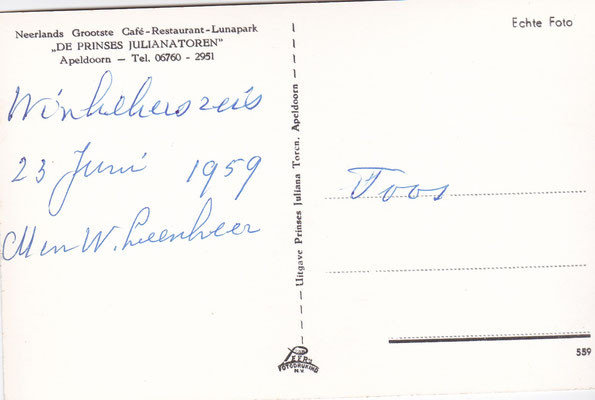 Neerlands Grootste Café-Restaurant-Lunapark
„DE PRINSES JULIANATOREN”
Apeldoorn — Tel. 06760 - 2951
Winkeliersreis
23 Juni 1959
M en W. Leenheer
Uitgave Prinses Juliana Toren, Apeldoorn
FOTODRUKIND
N.V.
Echte Foto
Toos
559